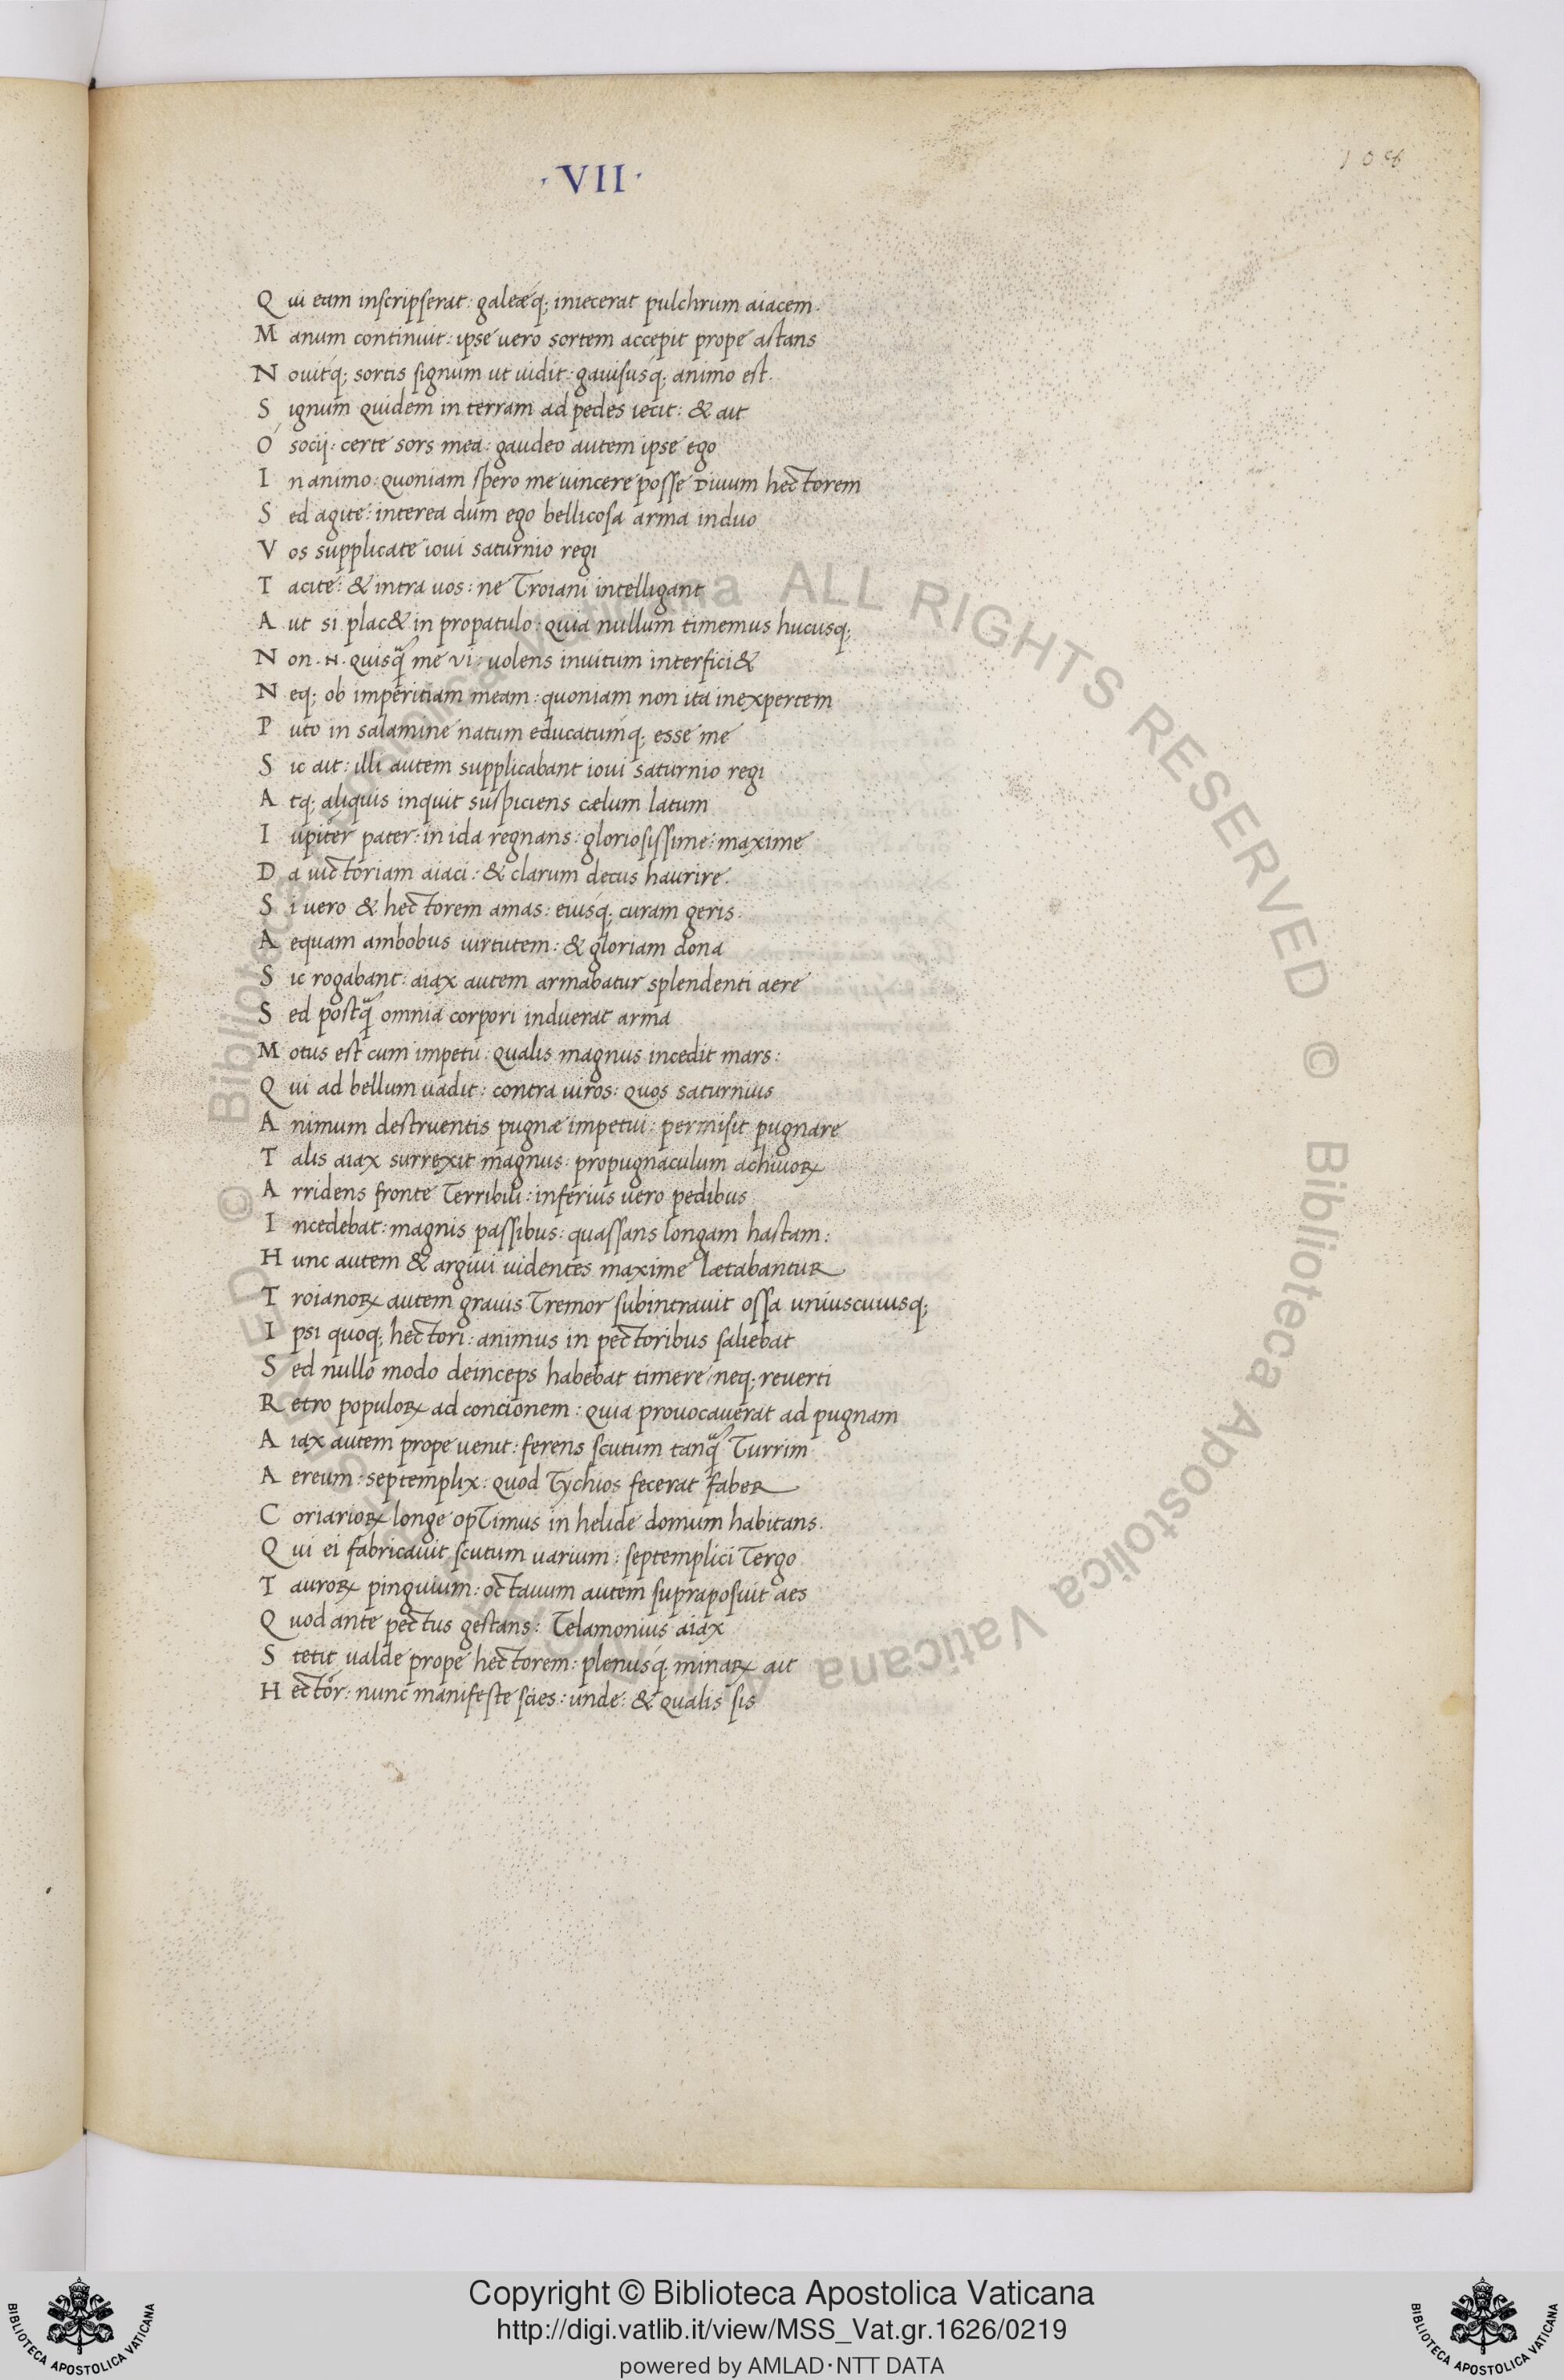 ·VII·
108
Qui eam inscripserat: galeæq; iniecerat pulchrum aiacem.
Manum continuit: ipse uero sortem accepit prope astans
Nouitq; sortis signum ut uidit: gauisusq; animo est.
Signum quidem in terram ad pedes iecit: & ait
Ó socij: certe sors mea: gaudeo autem ipse ego
In animo: quoniam spero me uincere posse Diuum hectorem
Sed agite: interea dum ego bellicosa arma induo
Vos supplicate ioui saturnio regi
Tacite: & intra uos: ne Troiani intelligant
Aut si plac& in propatulo: quia nullum timemus hucusq;
Non .H. quisq̃ me vi: uolens inuitum interfici&
Neq; ob imperitiam meam: quoniam non ita inexpertem
Puto in salamine natum educatumq; esse me
Sic ait: illi autem supplicabant ioui saturnio regi
Atq; aliquis inquit suspiciens cælum latum
Iupiter pater: in ida regnans: gloriosissime: maxime
Da uictoriam aiaci: & clarum decus haurire.
Si uero & hectorem amas: eiusq; curam geris:
Aequam ambobus uirtutem: & gloriam dona
Sic rogabant: aiax autem armabatur splendenti aere
Sed postq̃ omnia corpori induerat arma
Motus est cum impetu: qualis magnus incedit mars:
Qui ad bellum uadit: contra uiros: quos saturnius
Animum destruentis pugnæ impetui: permisit pugnare
Talis aiax surrexit magnus: propugnaculum achiuoꝝ
Arridens fronte Terribili: inferius uero pedibus
Incedebat: magnis passibus: quassans longam hastam:
Hunc autem & argiui uidentes maxime lætabantur
Troianoꝝ autem grauis Tremor subintrauit ossa uniuscuiusq;
Ipsi quoq; hectori: animus in pectoribus saliebat
Sed nullo modo deinceps habebat timere: neq; reuerti
Retro populoꝝ ad concionem: quia prouocauerat ad pugnam
Aiax autem prope uenit: ferens scutum tanq̃ Turrim
Aereum: septemplix: quod Tychios fecerat faber
Coriarioꝝ longe opTimus in helide domum habitans.
Qui ei fabricauit scutum uarium: septemplici Tergo
Tauroꝝ pinguium: octauum autem supraposuit aes
Quod ante pectus gestans: Telamonius aiax
Stetit ualde prope hectorem: plenusq; minaꝝ ait
Hector: nunc manifeste scies: unde: & qualis sis
© Biblioteca Apostolica Vaticana ALL RIGHTS RESERVED © Biblioteca Apostolica Vaticana ALL RIGHTS RESERVED
Copyright © Biblioteca Apostolica Vaticana
http://digi.vatlib.it/view/MSS_Vat.gr.1626/0219
powered by AMLAD·NTT DATA
BIBLIOTECA APOSTOLICA VATICANA
BIBLIOTECA APOSTOLICA VATICANA